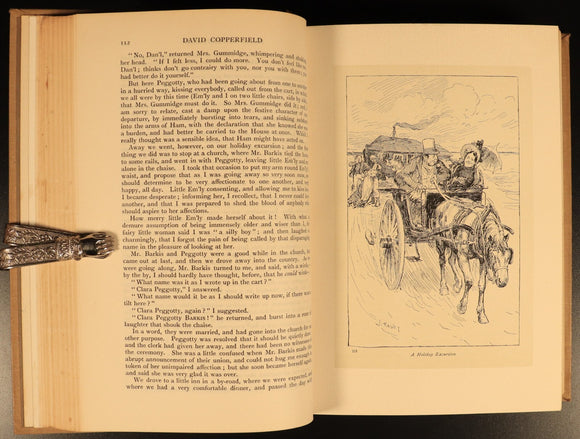 112 DAVID COPPERFIELD
"No, Dan'l," returned Mrs. Gummidge, whimpering and shaking
her head. "If I felt less, I could do more. You don't feel like me,
Dan'l; thinks don't go contrairy with you, nor you with them; you
had better do it yourself."
But here Peggotty, who had been going about from one to another
in a hurried way, kissing everybody, called out from the cart, in which
we all were by this time (Em'ly and I on two little chairs, side by side),
that Mrs. Gummidge must do it. So Mrs. Gummidge did it; and, I
am sorry to relate, cast a damp upon the festive character of our
departure, by immediately bursting into tears, and sinking subdued
into the arms of Ham, with the declaration that she knowed she was
a burden, and had better be carried to the House at once. Which I
really thought was a sensible idea, that Ham might have acted on.
Away we went, however, on our holiday excursion; and the first
thing we did was to stop at a church, where Mr. Barkis tied the horse
to some rails, and went in with Peggotty, leaving little Em'ly and me
alone in the chaise. I took that occasion to put my arm round Em'ly's
waist, and propose that as I was going away so very soon now, we
should determine to be very affectionate to one another, and very
happy, all day. Little Em'ly consenting, and allowing me to kiss her,
I became desperate; informing her, I recollect, that I never could love
another, and that I was prepared to shed the blood of anybody who
should aspire to her affections.
How merry little Em'ly made herself about it! With what a
demure assumption of being immensely older and wiser than I, the
fairy little woman said I was "a silly boy"; and then laughed so
charmingly, that I forgot the pain of being called by that disparaging
name in the pleasure of looking at her.
Mr. Barkis and Peggotty were a good while in the church, but
came out at last, and then we drove away into the country. As we
were going along, Mr. Barkis turned to me, and said, with a wink—
by the by, I should hardly have thought, before, that he could wink—
"What name was it as I wrote up in the cart?"
"Clara Peggotty," I answered.
"What name would it be as I should write up now, if there was a
tilt here?"
"Clara Peggotty, again?" I suggested.
"Clara Peggotty BARKIS!" he returned, and burst into a roar of
laughter that shook the chaise.
In a word, they were married, and had gone into the church for no
other purpose. Peggotty was resolved that it should be quietly done;
and the clerk had given her away, and there had been no witnesses of
the ceremony. She was a little confused when Mr. Barkis made this
abrupt announcement of their union, and could not hug me enough in
token of her unimpaired affection; but she soon became herself again,
and said she was very glad it was over.
We drove to a little inn in a by-road, where we were expected, and
where we had a very comfortable dinner, and passed the day with
A Holiday Excursion